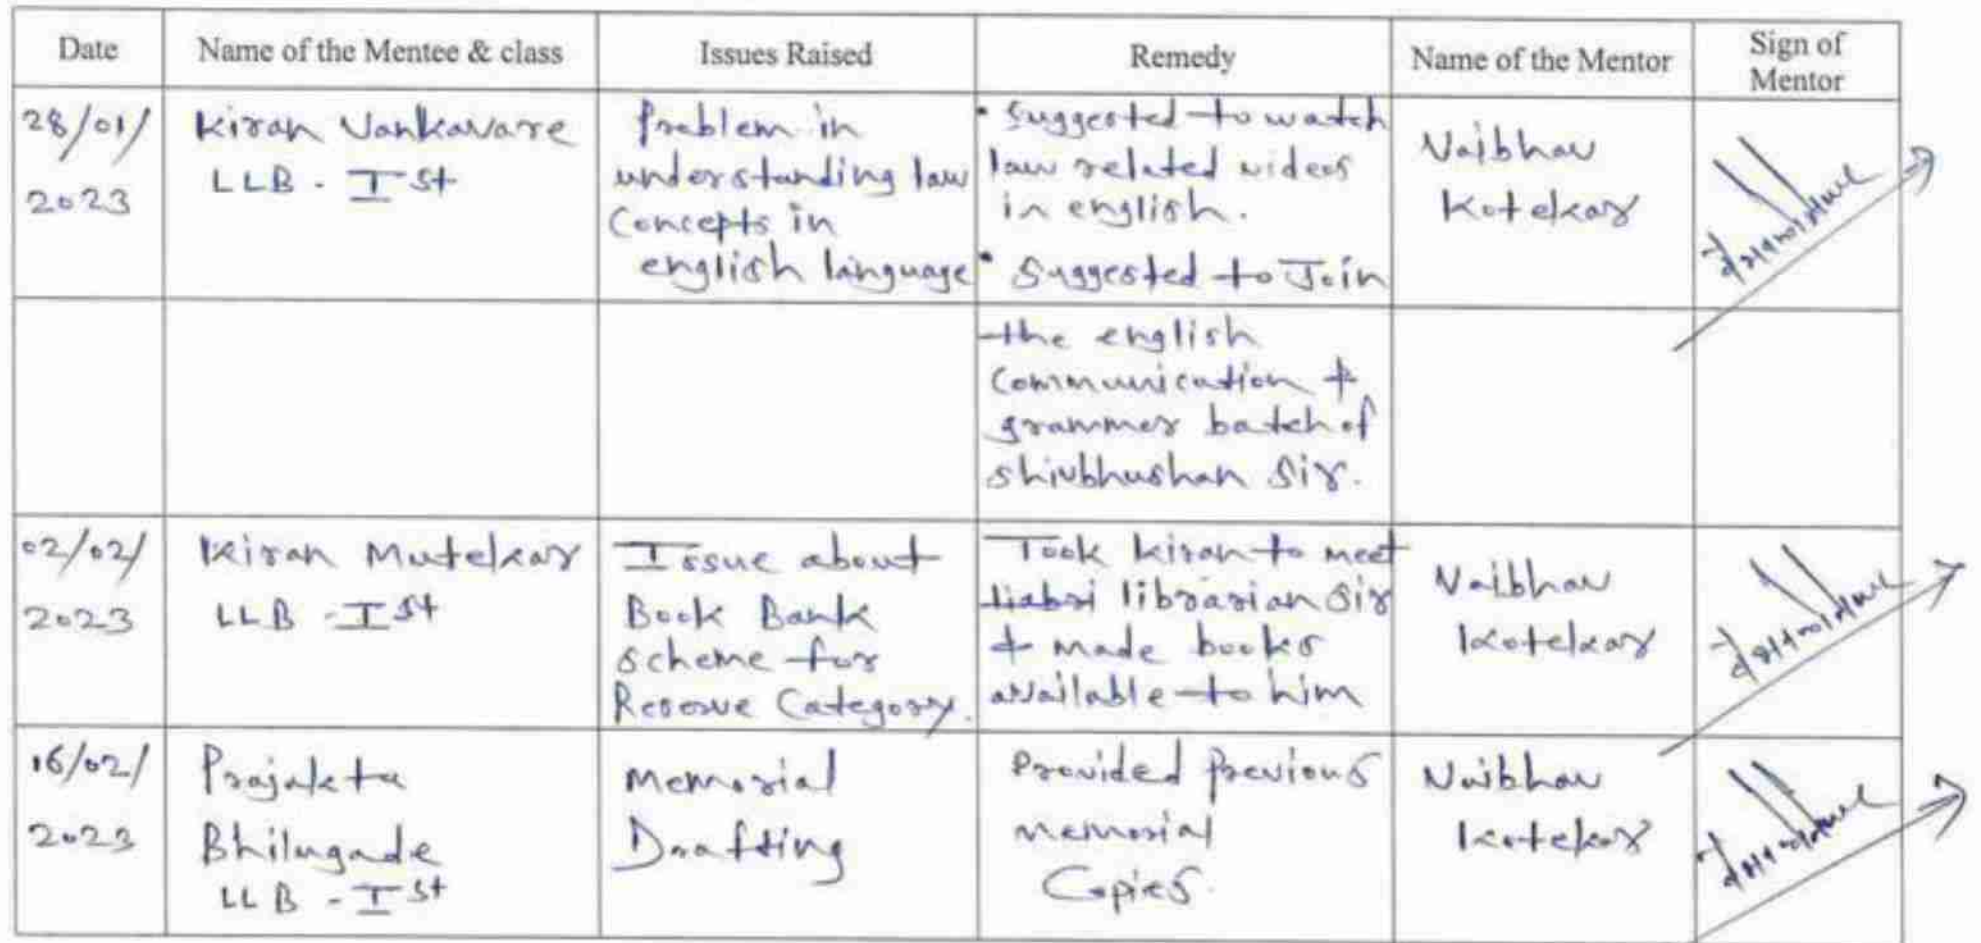 Date
Name of the Mentee & class
Issues Raised
Remedy
Name of the Mentor
Sign of
Mentor
28/01/
2023
Kiran Vankavare
LLB - I st
Problem in
understanding law
Concepts in
english language
• Suggested to watch
law related videos
in english.
• Suggested to Join
Vaibhav
Kotekar
the english
Communication &
grammer batch of
shivbhushan Sir.
02/02/
2023
Kiran Mutekar
LLB - I st
Issue about
Book Bank
scheme for
Reserve Category.
Took kiran to meet
librarian Sir
& made books
available to him
Vaibhav
Kotekar
16/02/
2023
Prajakta
Bhilugade
LLB - I st
Memorial
Drafting
Provided previous
memorial
Copies.
Vaibhav
Kotekar